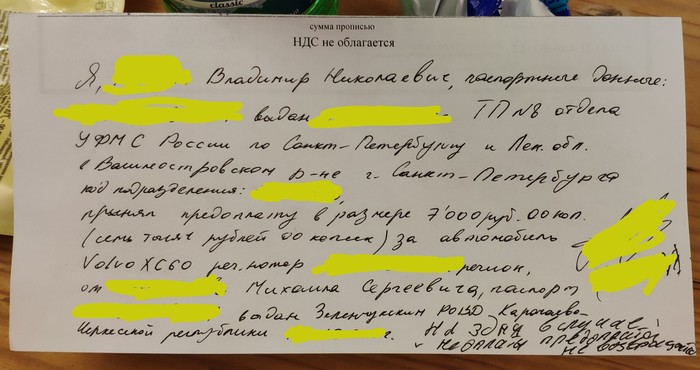 classic
сумма прописью
НДС не облагается
Я, Владимир Николаевич, паспортные данные:
выдан ТП №8 отдела
УФМС России по Санкт-Петербургу и Лен. обл.
в Василеостровском р-не г. Санкт-Петербурга
код подразделения:
принял предоплату в размере 7'000 руб. 00 коп.
(семь тысяч рублей 00 копеек) за автомобиль
Volvo XC60 рег. номер регион,
от Михаила Сергеевича, паспорт
выдан Зеленчукским РОВД Карачаево-
Черкесской республики г. в случае
предоплата
не возвращается